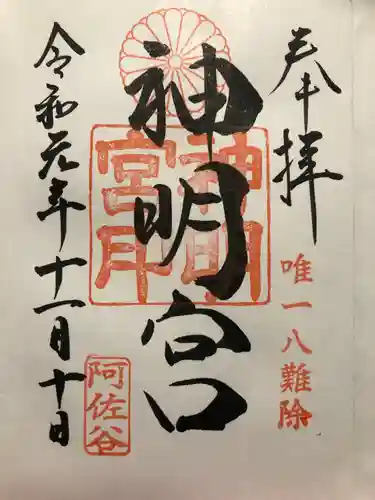 奉拝
唯一八難除
神明宮
神明宮印
令和元年十一月十日
阿佐谷